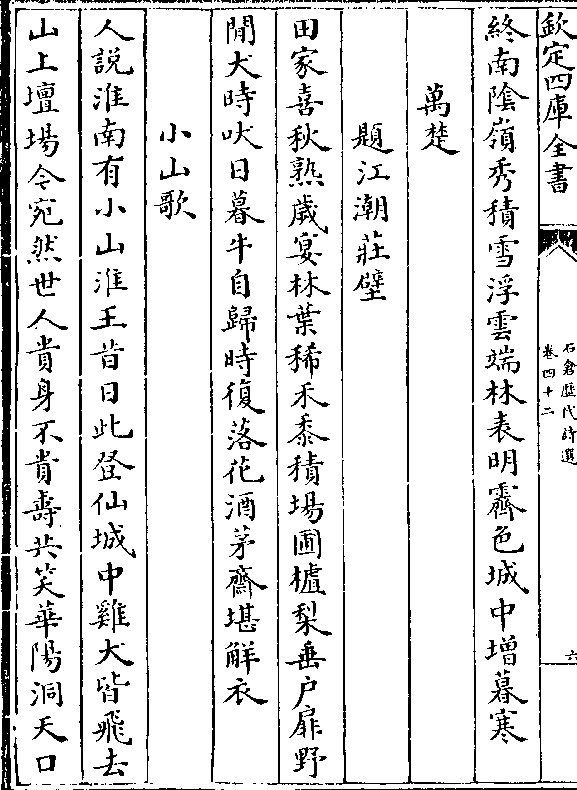 欽定四庫全書
石倉歷代詩選
卷四十二
六
終南陰嶺秀積雪浮雲端林表明霽色城中增暮寒
萬楚
題江潮莊壁
田家喜秋熟歲宴林葉稀禾黍積場圃樝梨垂户扉野
閒犬時吠日暮牛自歸時復落花酒茅齋堪解衣
小山歌
人説淮南有小山淮王昔日此登仙城中雞犬皆飛去
山上壇場今宛然世人貴身不貴壽共笑華陽洞天口